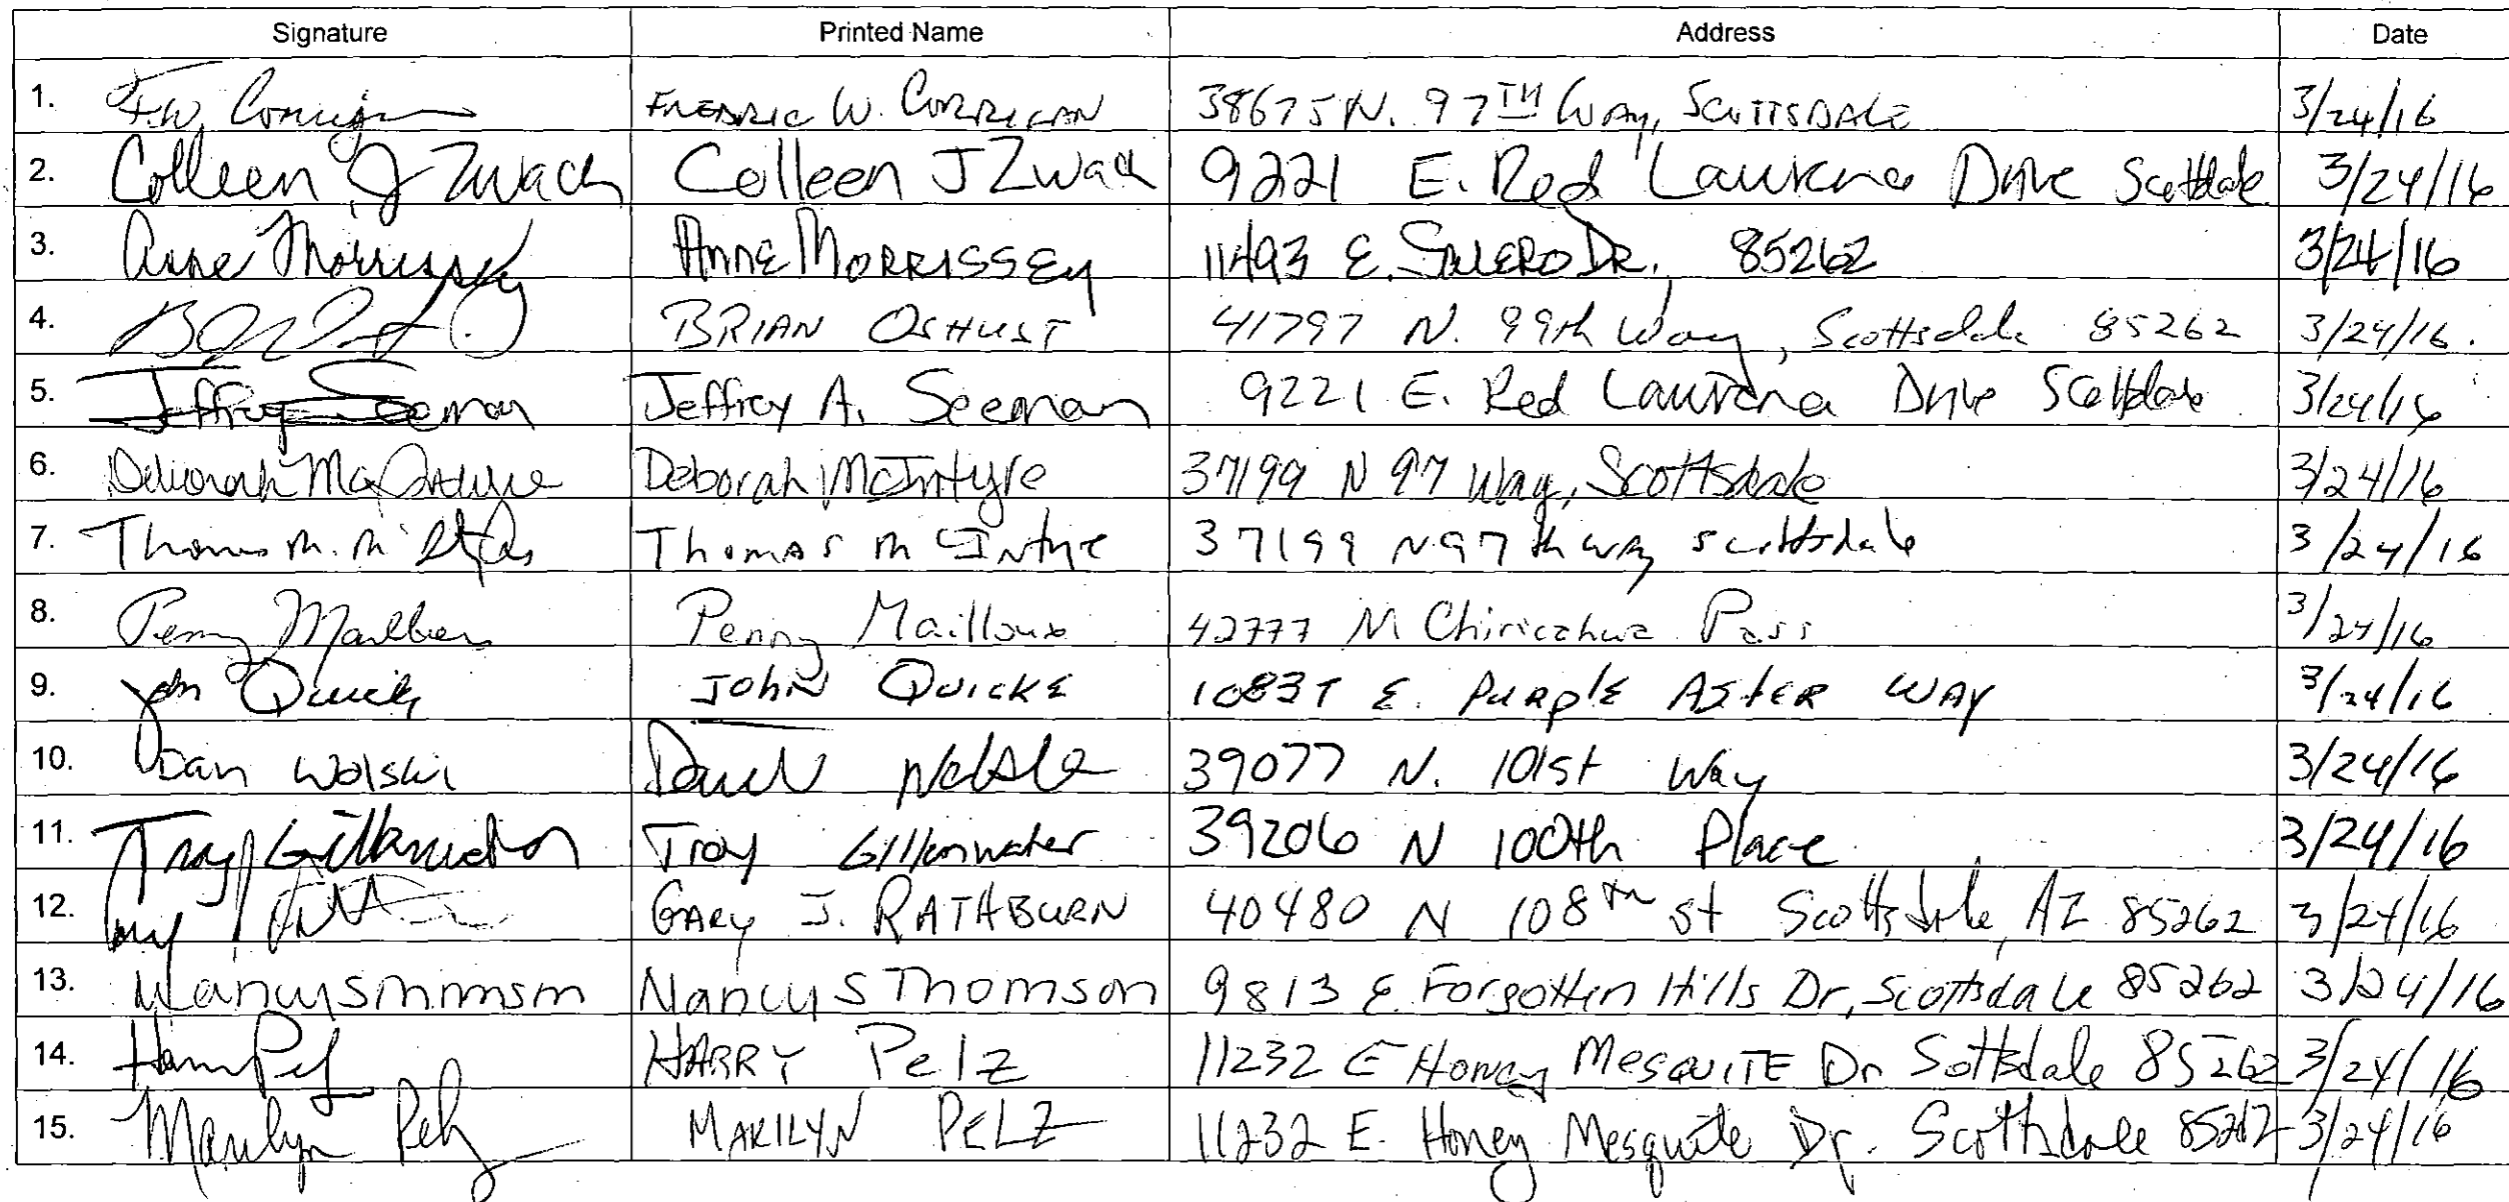 Signature Printed Name Address Date
1. F.W. Corrigan FREDRIC W. CORRIGAN 38675 N. 97TH WAY, SCOTTSDALE 3/24/16
2. Colleen J Zwach Colleen J Zwach 9221 E. Red Drive Scottsdale 3/24/16
3. Anne Morrissey ANNE MORRISSEY 11493 E. SALERO DR. 85262 3/24/16
4. BRIAN OSHUST 41797 N. 99th Way, Scottsdale 85262 3/24/16.
5. Jeffrey Seeman Jeffrey A. Seeman 9221 E. Red Drive Scottsdale 3/24/16
6. Deborah McIntyre Deborah McIntyre 37199 N 97 Way, Scottsdale 3/24/16
7. Thomas M. Thomas McIntyre 37199 N 97th way scottsdale 3/24/16
8. Penny Mailloux Penny Mailloux 42777 N Chiricahua Pass 3/24/16
9. John Quicke JOHN QUICKE E. PURPLE ASTER WAY 3/24/16
10. Dan Wolski 39077 N. 101st Way 3/24/16
11. Troy Gillenwater Troy Gillenwater 39206 N 100th Place 3/24/16
12. GARY J. RATHBURN 40480 N 108th St Scottsdale, AZ 85262 3/24/16
13. Nancy S Nancy S Thomson 9813 E. Forgotten Hills Dr, Scottsdale 85262 3/24/16
14. Harry Pelz HARRY Pelz 11232 E Honey MESQUITE Dr Sottsdale 85262 3/24/16
15. Marilyn Pelz MARILYN PELZ 11232 E. Honey Mesquite Dr. Scottsdale 3/24/16